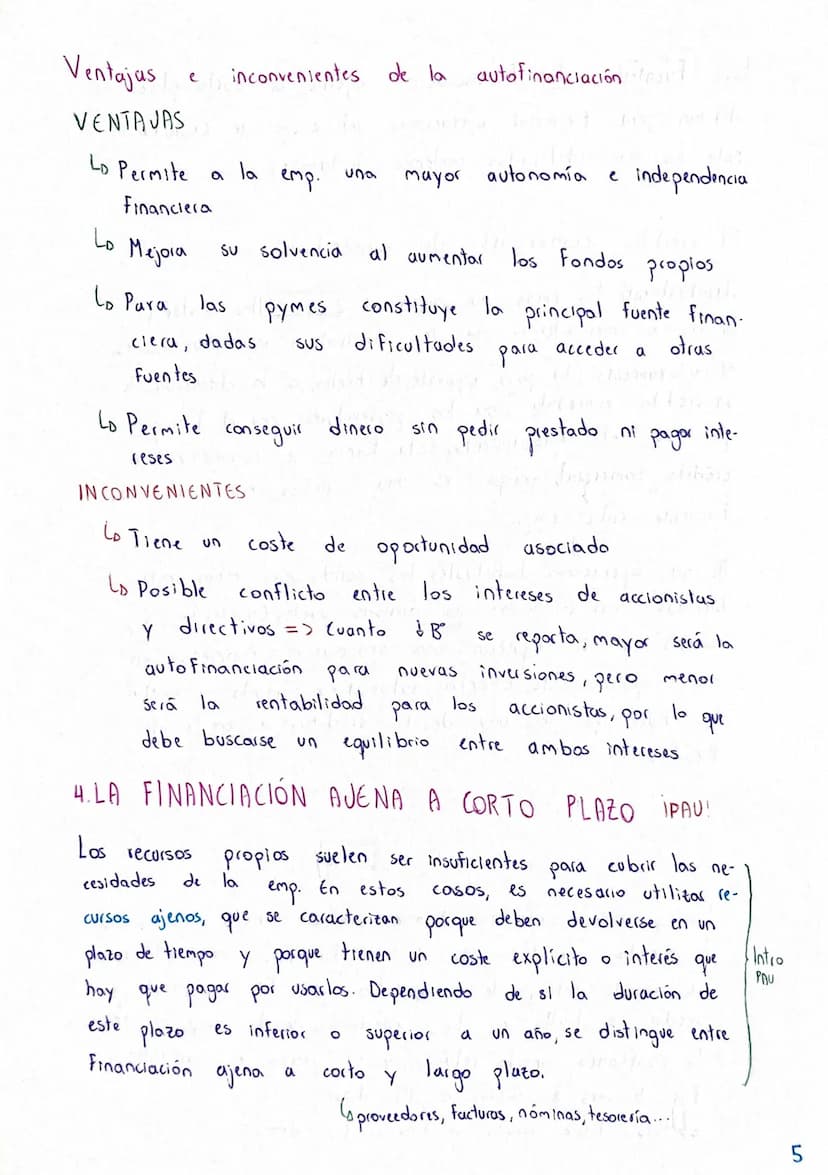 Ventajas e inconvenientes de la autofinanciación
VENTAJAS
↳ Permite a la emp. una mayor autonomía e independencia
financiera
↳ Mejora su solvencia al aumentar los fondos propios
↳ Para las pymes constituye la principal fuente finan-
ciera, dadas sus dificultades para acceder a otras
fuentes
↳ Permite conseguir dinero sin pedir prestado ni pagar inte-
reses
INCONVENIENTES
↳ Tiene un coste de oportunidad asociado
↳ Posible conflicto entre los intereses de accionistas
y directivos => Cuanto ↓ Bº se reparta, mayor será la
autofinanciación para nuevas inversiones, pero menor
será la rentabilidad para los accionistas, por lo que
debe buscarse un equilibrio entre ambos intereses
4. LA FINANCIACIÓN AJENA A CORTO PLAZO ¡PAU!
Los recursos propios suelen ser insuficientes para cubrir las ne-
cesidades de la emp. En estos casos, es necesario utilizar re-
cursos ajenos, que se caracterizan porque deben devolverse en un
plazo de tiempo y porque tienen un coste explícito o interés que
hay que pagar por usarlos. Dependiendo de si la duración de
este plazo es inferior o superior a un año, se distingue entre
financiación ajena a corto y largo plazo.
Intro
PAU
↳ proveedores, facturas, nóminas, tesorería...
5